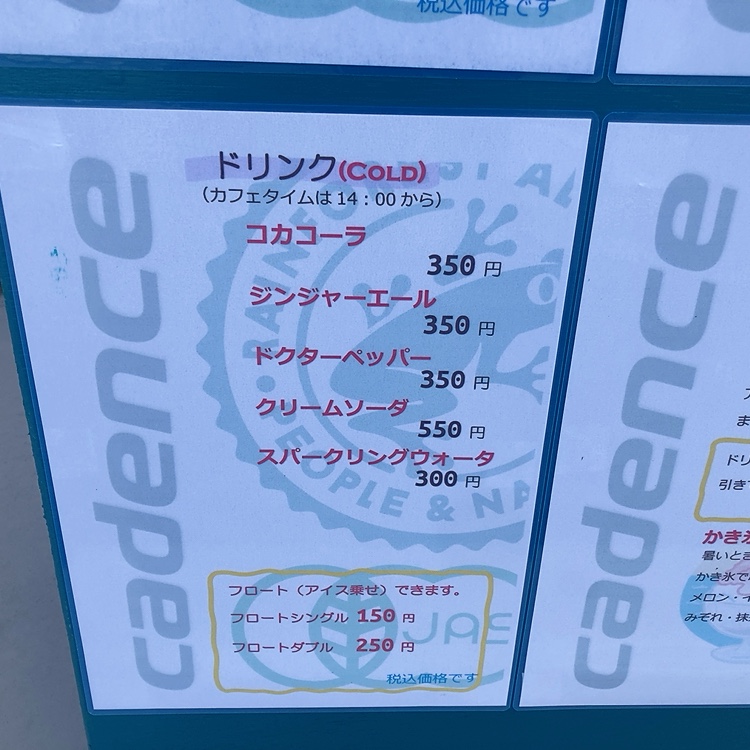 税込価格です
cadence
ドリンク(COLD)
(カフェタイムは14:00から)
コカコーラ
350 円
ジンジャーエール
350 円
ドクターペッパー
350 円
クリームソーダ
550 円
スパークリングウォータ
300 円
RAINFOREST AL
PEOPLE & NA
フロート(アイス乗せ)できます。
フロートシングル 150 円
フロートダブル 250 円
JAS
税込価格です
cadence
ま
ドリ
引き
かき氷
暑いとき
かき氷で
メロン・イ
みぞれ・抹